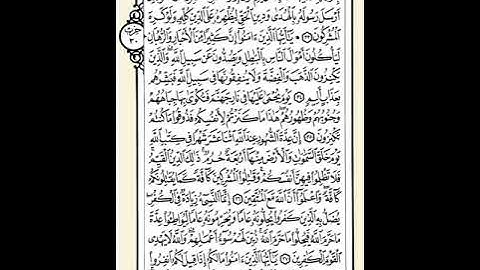 أَرْسَلَ رَسُولَهُ بِالْهُدَىٰ وَدِينِ الْحَقِّ لِيُظْهِرَهُ عَلَى الدِّينِ كُلِّهِ وَلَوْ كَرِهَ
الْمُشْرِكُونَ ۝ يَٰأَيُّهَا الَّذِينَ ءَامَنُوا إِنَّ كَثِيرًا مِّنَ الْأَحْبَارِ وَالرُّهْبَانِ
لَيَأْكُلُونَ أَمْوَٰلَ النَّاسِ بِالْبَٰطِلِ وَيَصُدُّونَ عَن سَبِيلِ اللَّهِ وَالَّذِينَ
يَكْنِزُونَ الذَّهَبَ وَالْفِضَّةَ وَلَا يُنفِقُونَهَا فِي سَبِيلِ اللَّهِ فَبَشِّرْهُم
بِعَذَابٍ أَلِيمٍ ۝ يَوْمَ يُحْمَىٰ عَلَيْهَا فِي نَارِ جَهَنَّمَ فَتُكْوَىٰ بِهَا جِبَاهُهُمْ
وَجُنُوبُهُمْ وَظُهُورُهُمْ هَٰذَا مَا كَنَزْتُمْ لِأَنفُسِكُمْ فَذُوقُوا مَا كُنتُمْ
تَكْنِزُونَ ۝ إِنَّ عِدَّةَ الشُّهُورِ عِندَ اللَّهِ اثْنَا عَشَرَ شَهْرًا فِي كِتَٰبِ اللَّهِ
يَوْمَ خَلَقَ السَّمَٰوَٰتِ وَالْأَرْضَ مِنْهَا أَرْبَعَةٌ حُرُمٌ ذَٰلِكَ الدِّينُ الْقَيِّمُ
فَلَا تَظْلِمُوا فِيهِنَّ أَنفُسَكُمْ وَقَٰتِلُوا الْمُشْرِكِينَ كَافَّةً كَمَا يُقَٰتِلُونَكُمْ
كَافَّةً وَاعْلَمُوا أَنَّ اللَّهَ مَعَ الْمُتَّقِينَ ۝ إِنَّمَا النَّسِيءُ زِيَادَةٌ فِي الْكُفْرِ
يُضَلُّ بِهِ الَّذِينَ كَفَرُوا يُحِلُّونَهُ عَامًا وَيُحَرِّمُونَهُ عَامًا لِّيُوَاطِئُوا عِدَّةَ
مَا حَرَّمَ اللَّهُ فَيُحِلُّوا مَا حَرَّمَ اللَّهُ زُيِّنَ لَهُمْ سُوءُ أَعْمَٰلِهِمْ وَاللَّهُ لَا يَهْدِي
الْقَوْمَ الْكَٰفِرِينَ ۝ يَٰأَيُّهَا الَّذِينَ ءَامَنُوا مَا لَكُمْ إِذَا قِيلَ لَكُمُ انفِرُوا